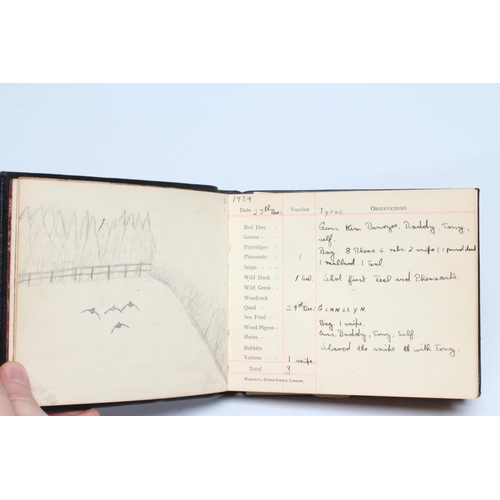 1959
Date 27th Dec: Number Tycoe OBSERVATIONS
Red Deer
Grouse
Partridges
Pheasants 1
Snipe
Wild Duck 1 Teal
Wild Geese
Woodcock
Quail
Sea Food
Wood Pigeon
Hares
Rabbits
Various 1 snipe
Total 3
Guns Ken Daddy, Tony,
self.
Bag 8 Pheas 6 rabs 2 snipes (1 found dead
1 mallard 1 Teal.
Shot first Teal and Pheasants.
29th Dec: GLANLLYN.
Bag 1 snipe.
Guns Daddy, Tony, Self.
Shared the snipe with Tony.